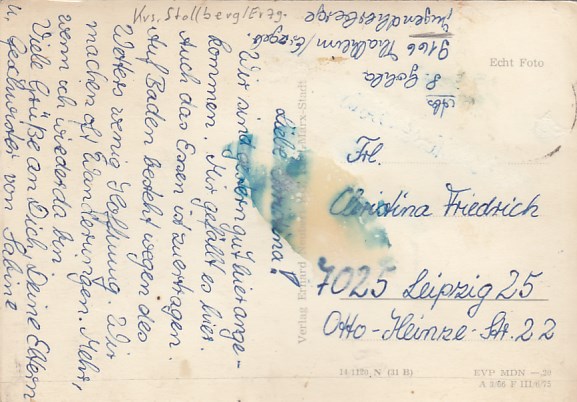 Krs. Stollberg/Erzg.
Liebe Christina!
Wir sind gestern gut hier ange-
kommen. Mir gefällt es hier.
Auch das Essen ist zu ertragen.
Auf Baden besteht wegen des
Wetters wenig Hoffnung. Wir
machen oft Wanderungen. Mehr,
wenn ich wieder da bin.
Viele Grüße an Dich, Deine Eltern
u. Geschwister von Sabine
Abs.
S. Golda
9166 Thalheim/Erzgeb.
Jugendherberge
Echt Foto
Frl.
Christina Friedrich
7025 Leipzig 25
Otto-Heinze-Str. 22
Verlag Erhard Marx-Stadt
14/1189 N (31 B)
EVP MDN –.20
A 5/66 F III/6/75